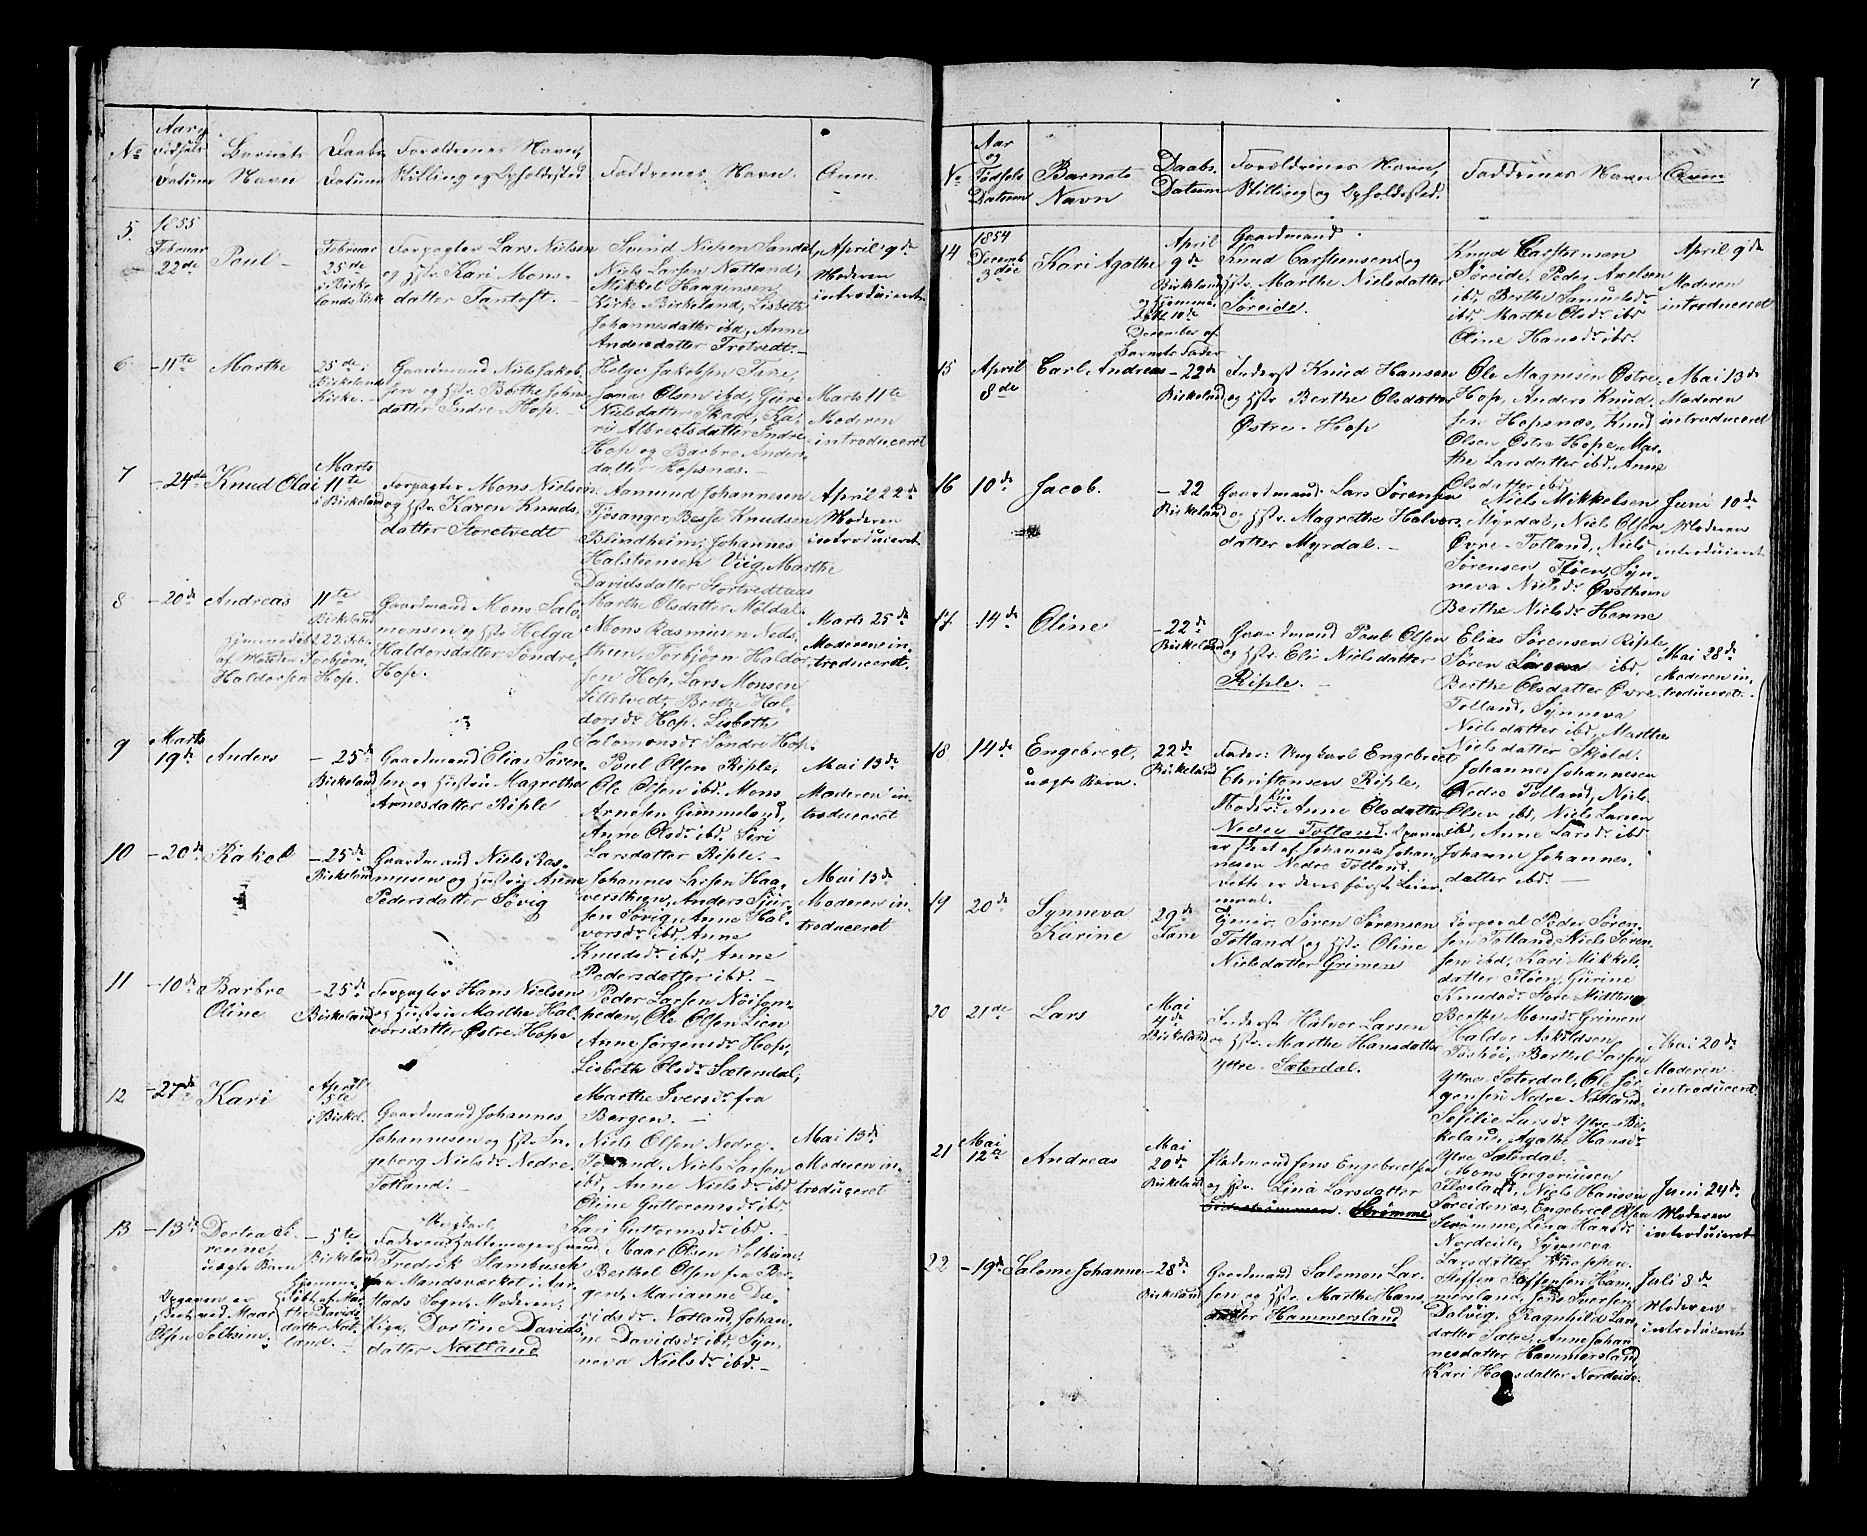 7
No
Aar og
Fødsels
Datum
Barnets
Navn
Daabs
Datum
Forældrenes Navn,
Stilling og Opholdssted
Faddernes Navn.
Anm.
5.
1855
Februar
22de
Poul
Februar
25de
i Birke
lands Kirke
Forpagter Lars Nielsen
og Hstr. Kari Mons-
datter Fantoft.
Niels Larsen Natland,
Mikkel Haagensen
Kirke-Birkeland, Lisbeth
Johannesdatter ibd, Anne
Andersdatter
April 9de
Moderen
introduceret
6
-11te
Marthe
25de i
Birkelands
Kirke.
Gaardmand Niels Jakob-
sen og Hstr. Berthe John
datter Indre Hop.
Helge Jakobsen Fane,
Jonas Olsen ibd, Guri
Nielsdatter Skage, Ka-
ri Albretsdatter Indre
Hop og Barbro Anders
datter Hopsnæs.
Marts 11te
Moderen
introduceret
7
-24de
Knud Olai
Marts
11te
i Birkeland
Forpagter Mons Nielsen
og Hstr. Karen Knuds-
datter Storetvedt
Aamund Johannesen
Tjøsanger, Besse Knudsen
Blindheim, Johannes
Halstensen Viig, Marthe
Davidsdatter Stortvedtaas
April 22de
Moderen
introduceret
8
-20de
Andreas
hjemmedøbt 22 Feb.
af Torbjørn
Haldorsen Hop.
11te
Birkeland
Gaardmand Mons Salo-
monsen og Hstr Helga
Haldorsdatter Søndre
Hop.
Marthe Olsdatter Møldal
Mons Rasmusen Neds-
tun, Torbjørn Haldor
sen Hop, Lars Monsen
Berthe Hal-
dorsdr Hop. Lisbeth
Salomonsdr Søndre Hop.
Marts 25de
Moderen in-
troduceret.
9
Marts
19de
Anders
-25de
Birkeland
Gaardmand Elias Søren-
sen og Hustru Magrethe
Arnesdatter Riple
Poul Olsen Riple,
Ole Olsen ibd. Mons
Arnesen Gimmeland,
Anne Olsdr ibd. Siri
Larsdatter Riple.
Mai 13de
Moderen in-
troduceret
10
-20de
Rakel
-25de
Birkeland
Gaardmand Niels Ras-
musen og Hustru Anne
Pedersdatter Søvig
Johannes Larsen Haa-
versthun, Anders Sjur-
sen Søvig, Anne Hal-
vorsdr ibd, Anne
Knudsdr ibd, Anne
Pedersdatter ibd.
Mai 13de
Moderen in-
troduceret
11
-10de
Barbre
Oline
-25de
Birkeland
Forpagter Hans Nielsen
og Hustru Marthe Hal-
vorsdatter Østre Hope
Peder Larsen Nøisom-
heden, Ole Olsen Lien
Anne Jørgensdr Hop,
Lisbeth Olsdr Sæterdal,
Marthe Iversdr fra
Bergen.
12
-27de
Kari
April
5te
i Birkel.
Gaardmand Johannes
Johannesen og Hstr. In-
geborg Nielsdr Nedre
Totland.
Niels Olsen Nedre
Totland, Niels Larsen
ibd, Anne Nielsdr ibd
Oline Guttormsdr ibd.
Kari Guttormsdr ibd.
Mai 13de
Moderen in-
troduceret
13
-13de
Dortea Si-
renne,
uægte Barn
-5te
Birkeland
Hjemme-
døbt af Mar-
the Davids-
datter Nat-
land.
Opgaven er
skeet ved Maar
Olsen Solheim.
Ungkarl,
Faderen: Hattemagersvend
Fredrik Stambusek
paa Mandsværket i Aar-
stads Sogn, Moderen:
Pige, Dortine Davids-
datter Natland
Maar Olsen Solheim,
Berthel Olsen fra Ber-
gen, Marianne Da-
vidsdr Natland, Johan-
ne Davidsdr ibd, Syn-
neva Nielsdr ibd.
No
Aar
og
Fødsels
Datum
Barnets
Navn
Daabs
Datum
Forældrenes Navn,
Stilling og Opholdssted.
Faddrenes Navn
Anm
14
1854
Decemb
3die
Kari Agathe
April
9de
Birkeland
og Hjemme-
døbt 10de
December af
Barnets Fader
Gaardmand
Knud Carstensen og
Hstr. Marthe Nielsdatter
Søreide.
Knud Carstensen
Søreide, Peder Axelsen
ibd, Berthe Samuelsdr
ibd, Marthe Olsdr ibd
Oline Hansdr ibd.
April 9de
Moderen
introduceret
15
April
8de
Carl Andreas
-22de
Birkeland
Inderst Knud Hansen
og Hstr Berthe Olsdatter
Østre-Hop
Ole Magnesen Østre-
Hop, Anders Knud-
sen Hopsnæs, Knud
Olsen Østre Hope, Mar-
the Larsdatter ibd, Anne
Olsdatter ibd.
Mai 13de
Moderen
introduceret
16
10de
Jacob.
-22
Birkeland
Gaardmand Lars Sørensen
og Hstr. Magrethe Halvors-
datter Myrdal.
Niels Mikkelsen
Myrdal, Niels Olsen
Øvre-Totland, Niels
Sørensen Fløen, Syn-
neva Nielsdr
Berthe Nielsdr
Juni 10de
Moderen
introduceret
17
14de
Oline
-22de
Birkeland
Gaardmand Poul Olsen
og Hstr. Eli Nielsdatter
Riple.
Elias Sørensen Riple
Søren Larsen ibd,
Berthe Olsdatter Øvre
Totland, Synneva
Nielsdatter ibd, Marthe
Nielsdatter Skjold.
Mai 28de
Moderen in-
troduceret.
18
14de
Engebregt,
uægte Barn.
22de
Birkeland
Fader: Ungkarl Engebret
Christensen Riple,
Moder: Pige Anne Olsdatter
Nedre Totland. Opgaven
er skeet af Johannes Johan-
nesen Nedre Totland.
Dette er deres første Leier-
maal.
Johannes Johannesen
Nedre Totland, Niels
Olsen ibd, Niels Larsen
ibd, Anne Larsdr ibd
Johanne Johannes-
datter ibd.
19
20de
Synneva
Karine
29de
Fane
Søren Sørensen
Totland og Hstr Oline
Nielsdatter Grimen
Korporal Peder Søren-
sen Totland, Niels Søren-
sen ibd, Kari Mikkels-
datter Fløen, Gurine
Knudsdr Store Midttun
Berthe Monsdr Grimen
20
21de
Lars
Mai
4de
Birkeland
Inderst Halvor Larsen
og Hstr. Marthe Hansdatter
Ytre-Sæterdal.
Haldor Askildsen
Berthel Larsen
Ytre Sæterdal, Ole Jør-
gensen Nedre Natland,
Sesilie Larsdr Ytre-Bir-
keland, Agathe Hansdr
Ytre Sæterdal.
Mai 20de
Moderen
introduceret
21
Mai
12te
Andreas
Mai
20de
Birkeland
Pladsmand Jens Engebretsen
og Hstr. Lina Larsdatter
Strømme
Mons Gregoriusen
Flesland, Niels Hansen
Søreidenæs, Engebret Olsen
Strømme, Lina Hansdr
Nordeide, Synneva
Larsdatter Knappen.
Juni 24de
Moderen
introduceret
22
-19de
Salome Johanne
-28de
Birkeland
Gaardmand Salomon Lar-
sen og Hstr. Marthe Hans-
datter Hammersland
Steffen Steffensen Ham-
mersland, Jens Iversen
Dalvig, Ragnhild Lars-
datter Sætre, Anne Johan-
nesdatter Hammersland
Kari Hansdatter Nordeide.
Juli 8de
Moderen
introduceret